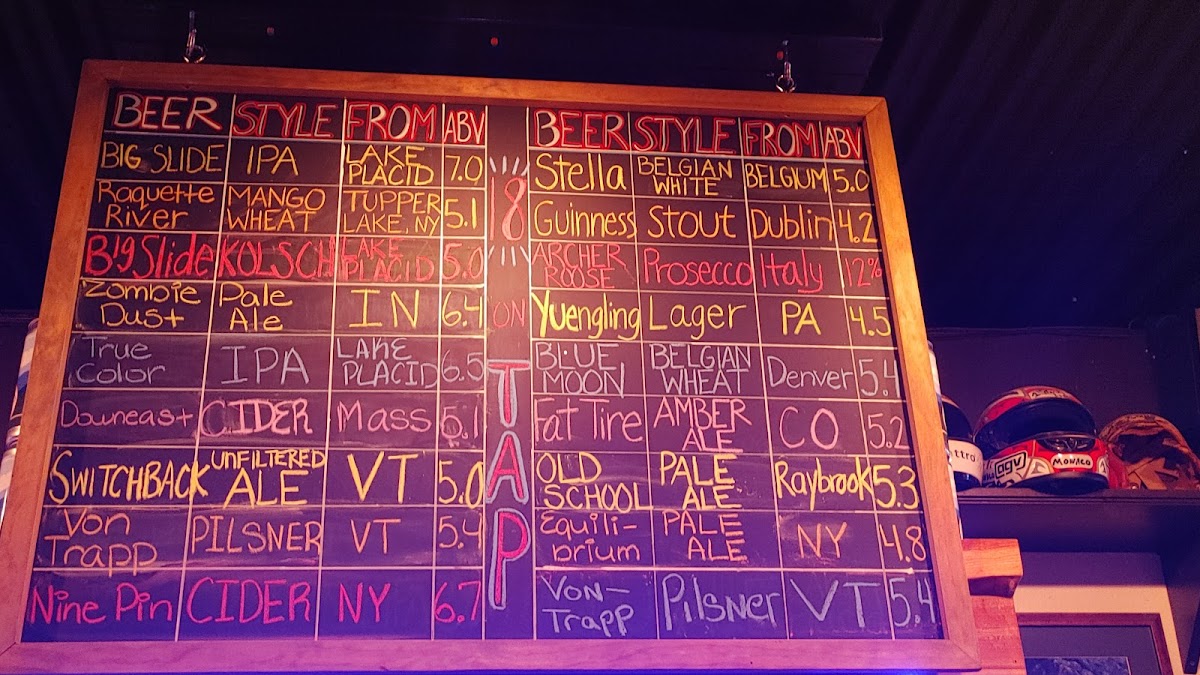 BEER STYLE FROM ABV
BIG SLIDE IPA LAKE PLACID 7.0
Raquette River MANGO WHEAT TUPPER LAKE, NY 5.1
Big Slide KOLSCH LAKE PLACID 5.0
Zombie Dust Pale Ale IN 6.4
True Color IPA LAKE PLACID 6.5
Downeast CIDER Mass 5.1
SWITCHBACK UNFILTERED ALE VT 5.0
Von Trapp PILSNER VT 5.4
Nine Pin CIDER NY 6.7
18
ON
TAP
BEER STYLE FROM ABV
Stella BELGIAN WHITE BELGIUM 5.0
Guinness Stout Dublin 4.2
ARCHER ROOSE Prosecco Italy 12%
Yuengling Lager PA 4.5
BLUE MOON BELGIAN WHEAT Denver 5.4
Fat Tire AMBER ALE CO 5.2
OLD SCHOOL PALE ALE Raybrook 5.3
Equili-brium PALE ALE NY 4.8
Von-Trapp Pilsner VT 5.4
agv
MONACO